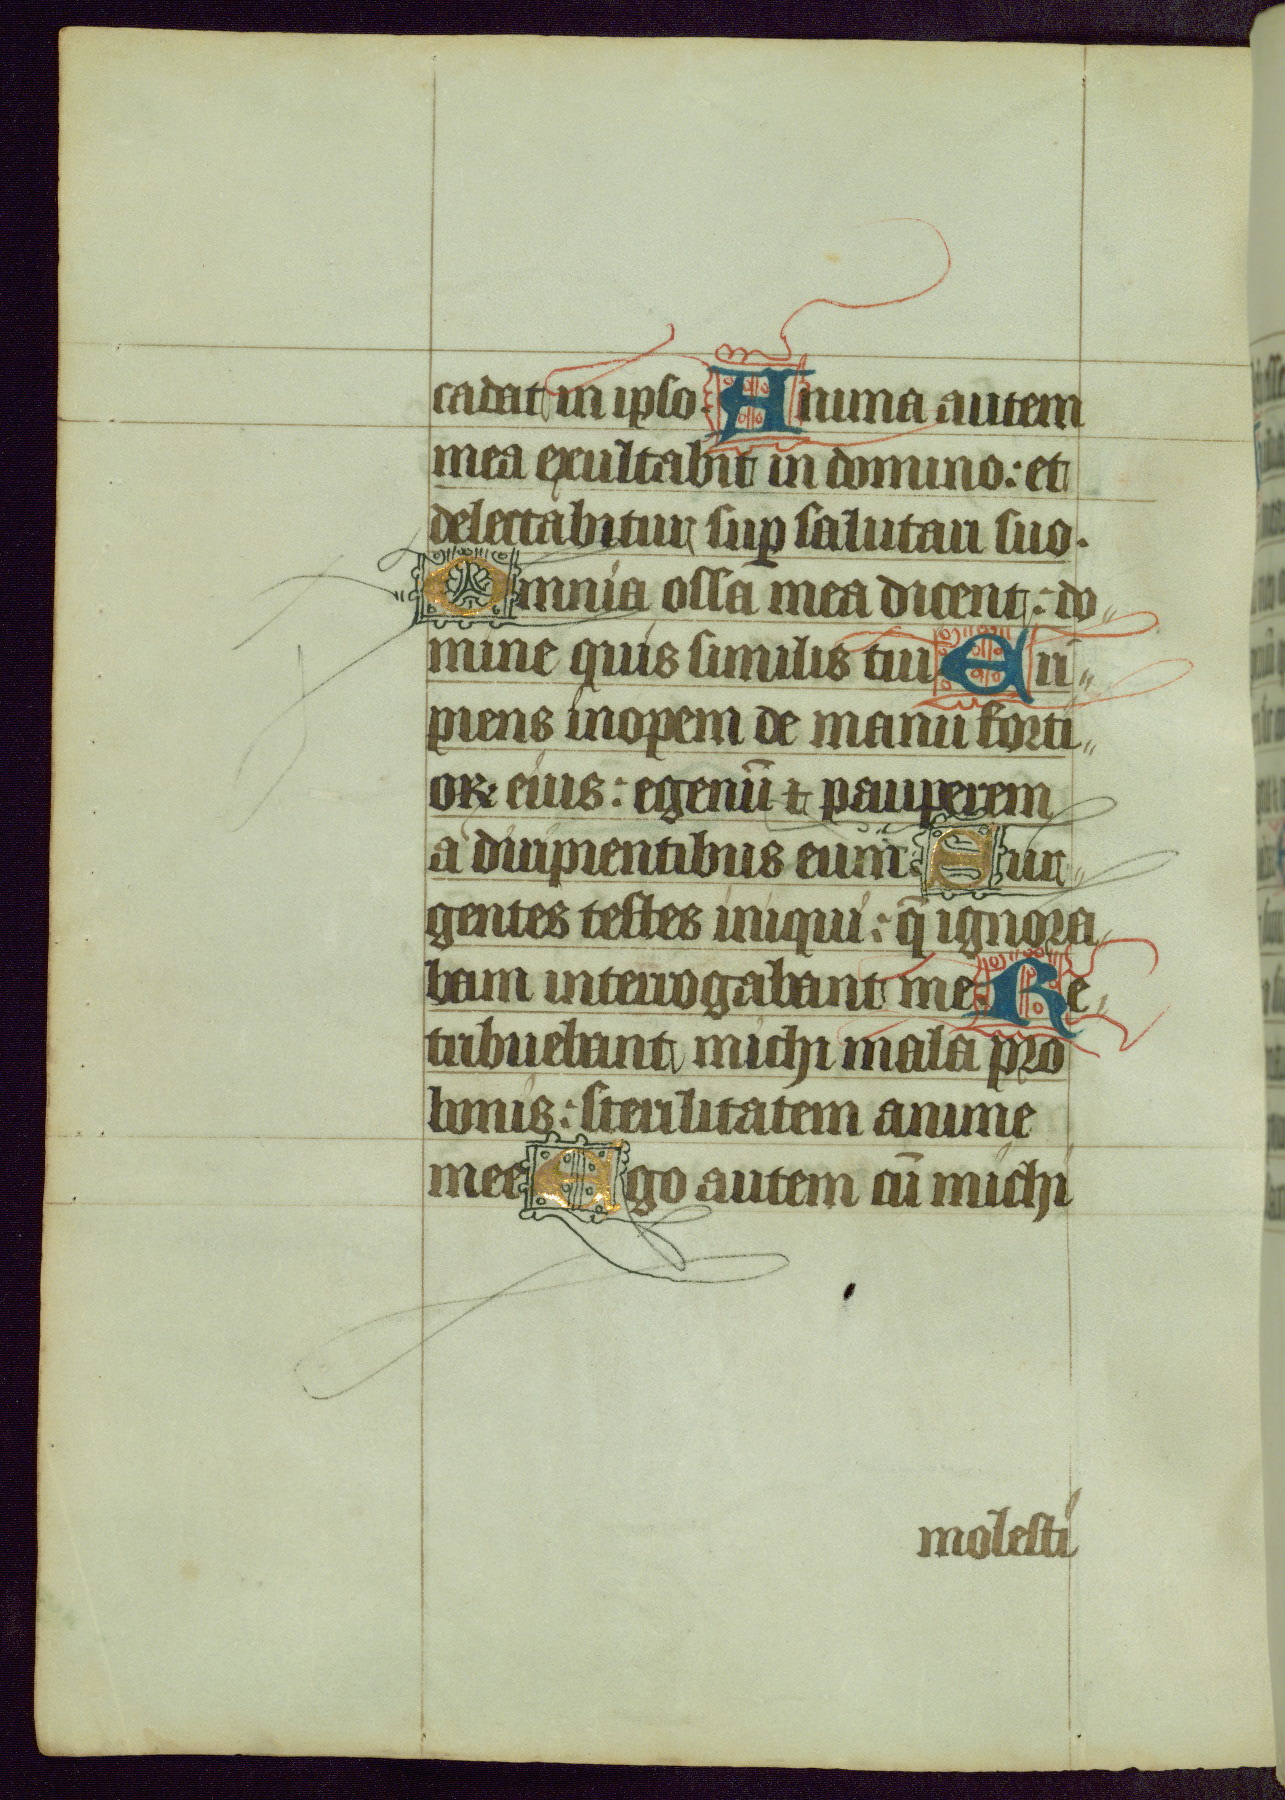 cadat in ipso. Anima autem
mea exultabit in domino: et
delectabitur sup salutari suo.
Omnia ossa mea dicent: do
mine quis similis tui Eri
piens inopem de manu forti
oꝝ eius: egenū ⁊ pauperem
a diripientibus eum. Sur
gentes testes iniqui: q̄ ignora
bam interrogabant me Re
tribuebant michi mala pro
bonis: sterilitatem anime
mee Ego autem cū michi
molesti